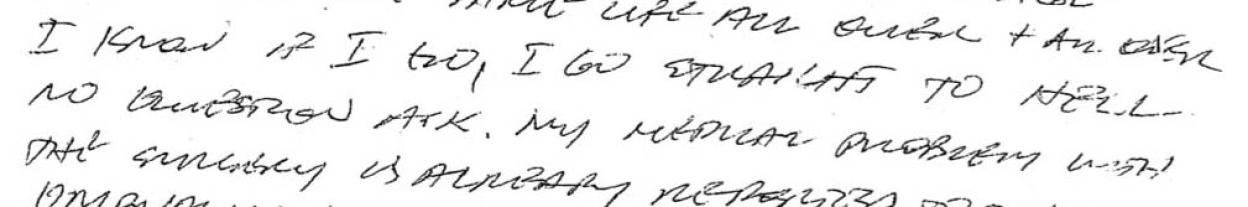 LIFE ALL OVER + ALL OVER
I KNOW IF I GO, I GO STRAIGHT TO HELL
NO QUESTION ASK. MY MEDICAL PROBLEM WITH
THE SURGERY IS ALREADY